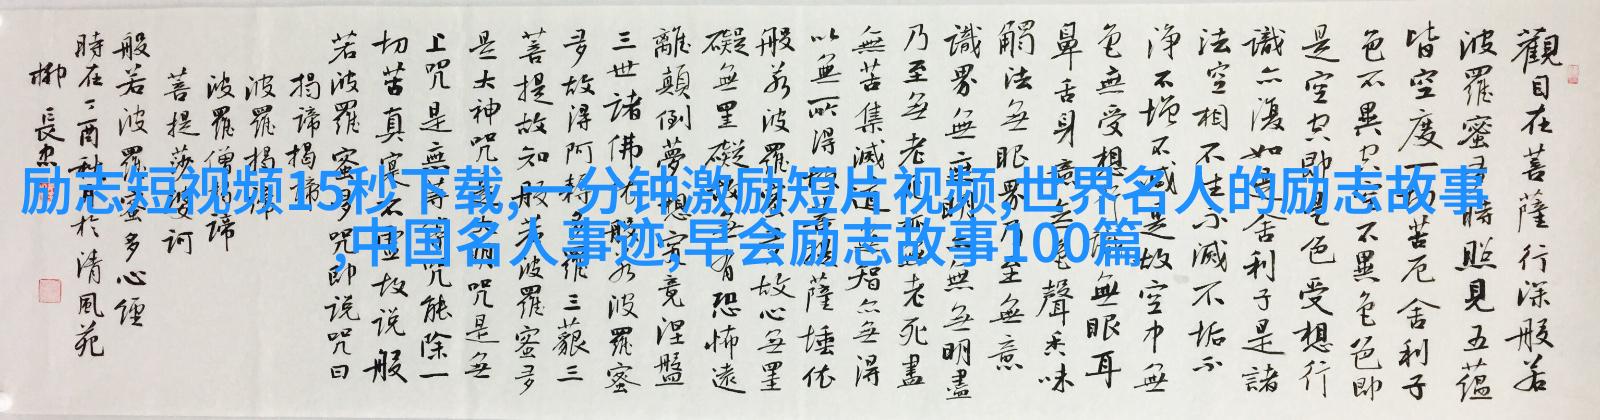 觀自在菩薩行深般若
波羅蜜多時照見五蘊
皆空度一切苦厄舍利子
色不異空空不異色色即
是空空即是色受想行
識亦復如是舍利子是諸
法空相不生不滅不垢不
淨不增不减是故空中無
色無受想行識無眼耳
鼻舌身意無色聲香味
觸法無眼界乃至無意
識界無無明亦無無明盡
乃至無老死亦無老死盡
無苦集滅道無智亦無得
以無所得故菩提薩埵依
般若波羅蜜多故心無罣
礙無罣礙故無有恐怖遠
離顛倒夢想究竟涅盤
三世諸佛依般若波羅蜜
多故得阿耨多羅三藐三
菩提故知般若波羅蜜多
是大神咒是大明咒是無
上咒是無等等咒能除一
切苦真實不虛故説般
若波羅蜜多咒即说咒曰
揭諦揭諦
波羅揭諦
波羅僧揭諦
菩提莎婆訶
般若波羅蜜多心經
時在丁酉秋月於清風苑
柳長忠
励志短视频15秒下载,一分钟激励短片视频,世界名人的励志故事
,中国名人事迹,早会励志故事100篇